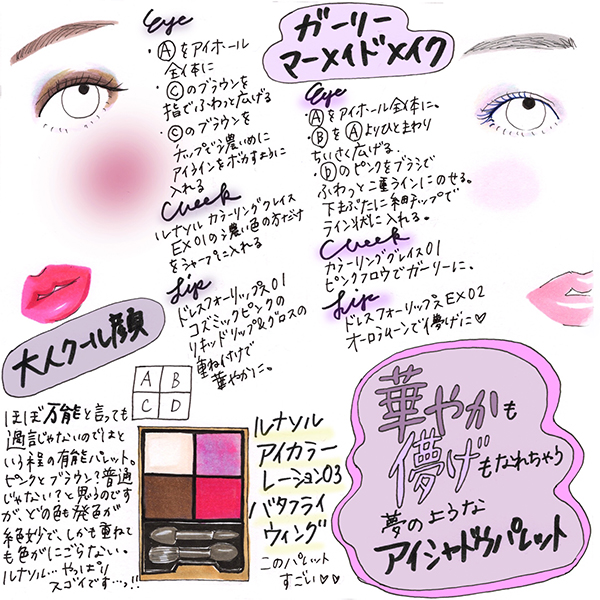 ガーリー
マーメイドメイク
Eye
・Ⓐをアイホール
全体に
・Ⓒのブラウンを
指でふわっと広げる
・Ⓒのブラウンを
チップで濃いめに
アイラインをボカすように
入れる
Cheek
ルナソル カラーリンググレイス
EX01の濃い色の方だけ
をシャープに入れる
Lip
ドレスフォーリップス01
コズミックピンクの
リキッドリップ&グロスの
重ね付けで
華やかに。
大人クール顔
Eye
・Ⓐをアイホール全体に。
・ⒷをⒶよりひとまわり
ちいさく広げる.
・ⓑのピンクをブラシで
ふわっと二重ラインにのせる。
下まぶたに細チップで
ライン状に入れる。
Cheek
カラーリンググレイス01
ピンクフロウでガーリーに。
Lip
ドレスフォーリップスEX02
オーロラムーンで儚げに♡
A B
C D
ほぼ万能と言っても
過言じゃないのではと
いう程の有能パレット。
ピンクとブラウン?普通
じゃない?と思うのです
が、どの色も発色が
絶妙で、しかも重ねて
も色がにごらない。
ルナソル…やっぱり
スゴイです…っ!!
ルナソル
アイカラー
レーション03
バタフライ
ウィング
このパレット
すごい♡♡
華やかも
儚げもなれちゃう
夢のような
アイシャドウパレット